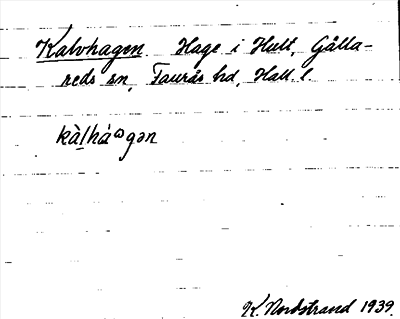 Kalvhagen. Hage i Hult, Gålla-
reds sn, Faurås hd, Hall. l.
kàlhàᵊgən
K. Nordstrand 1939.